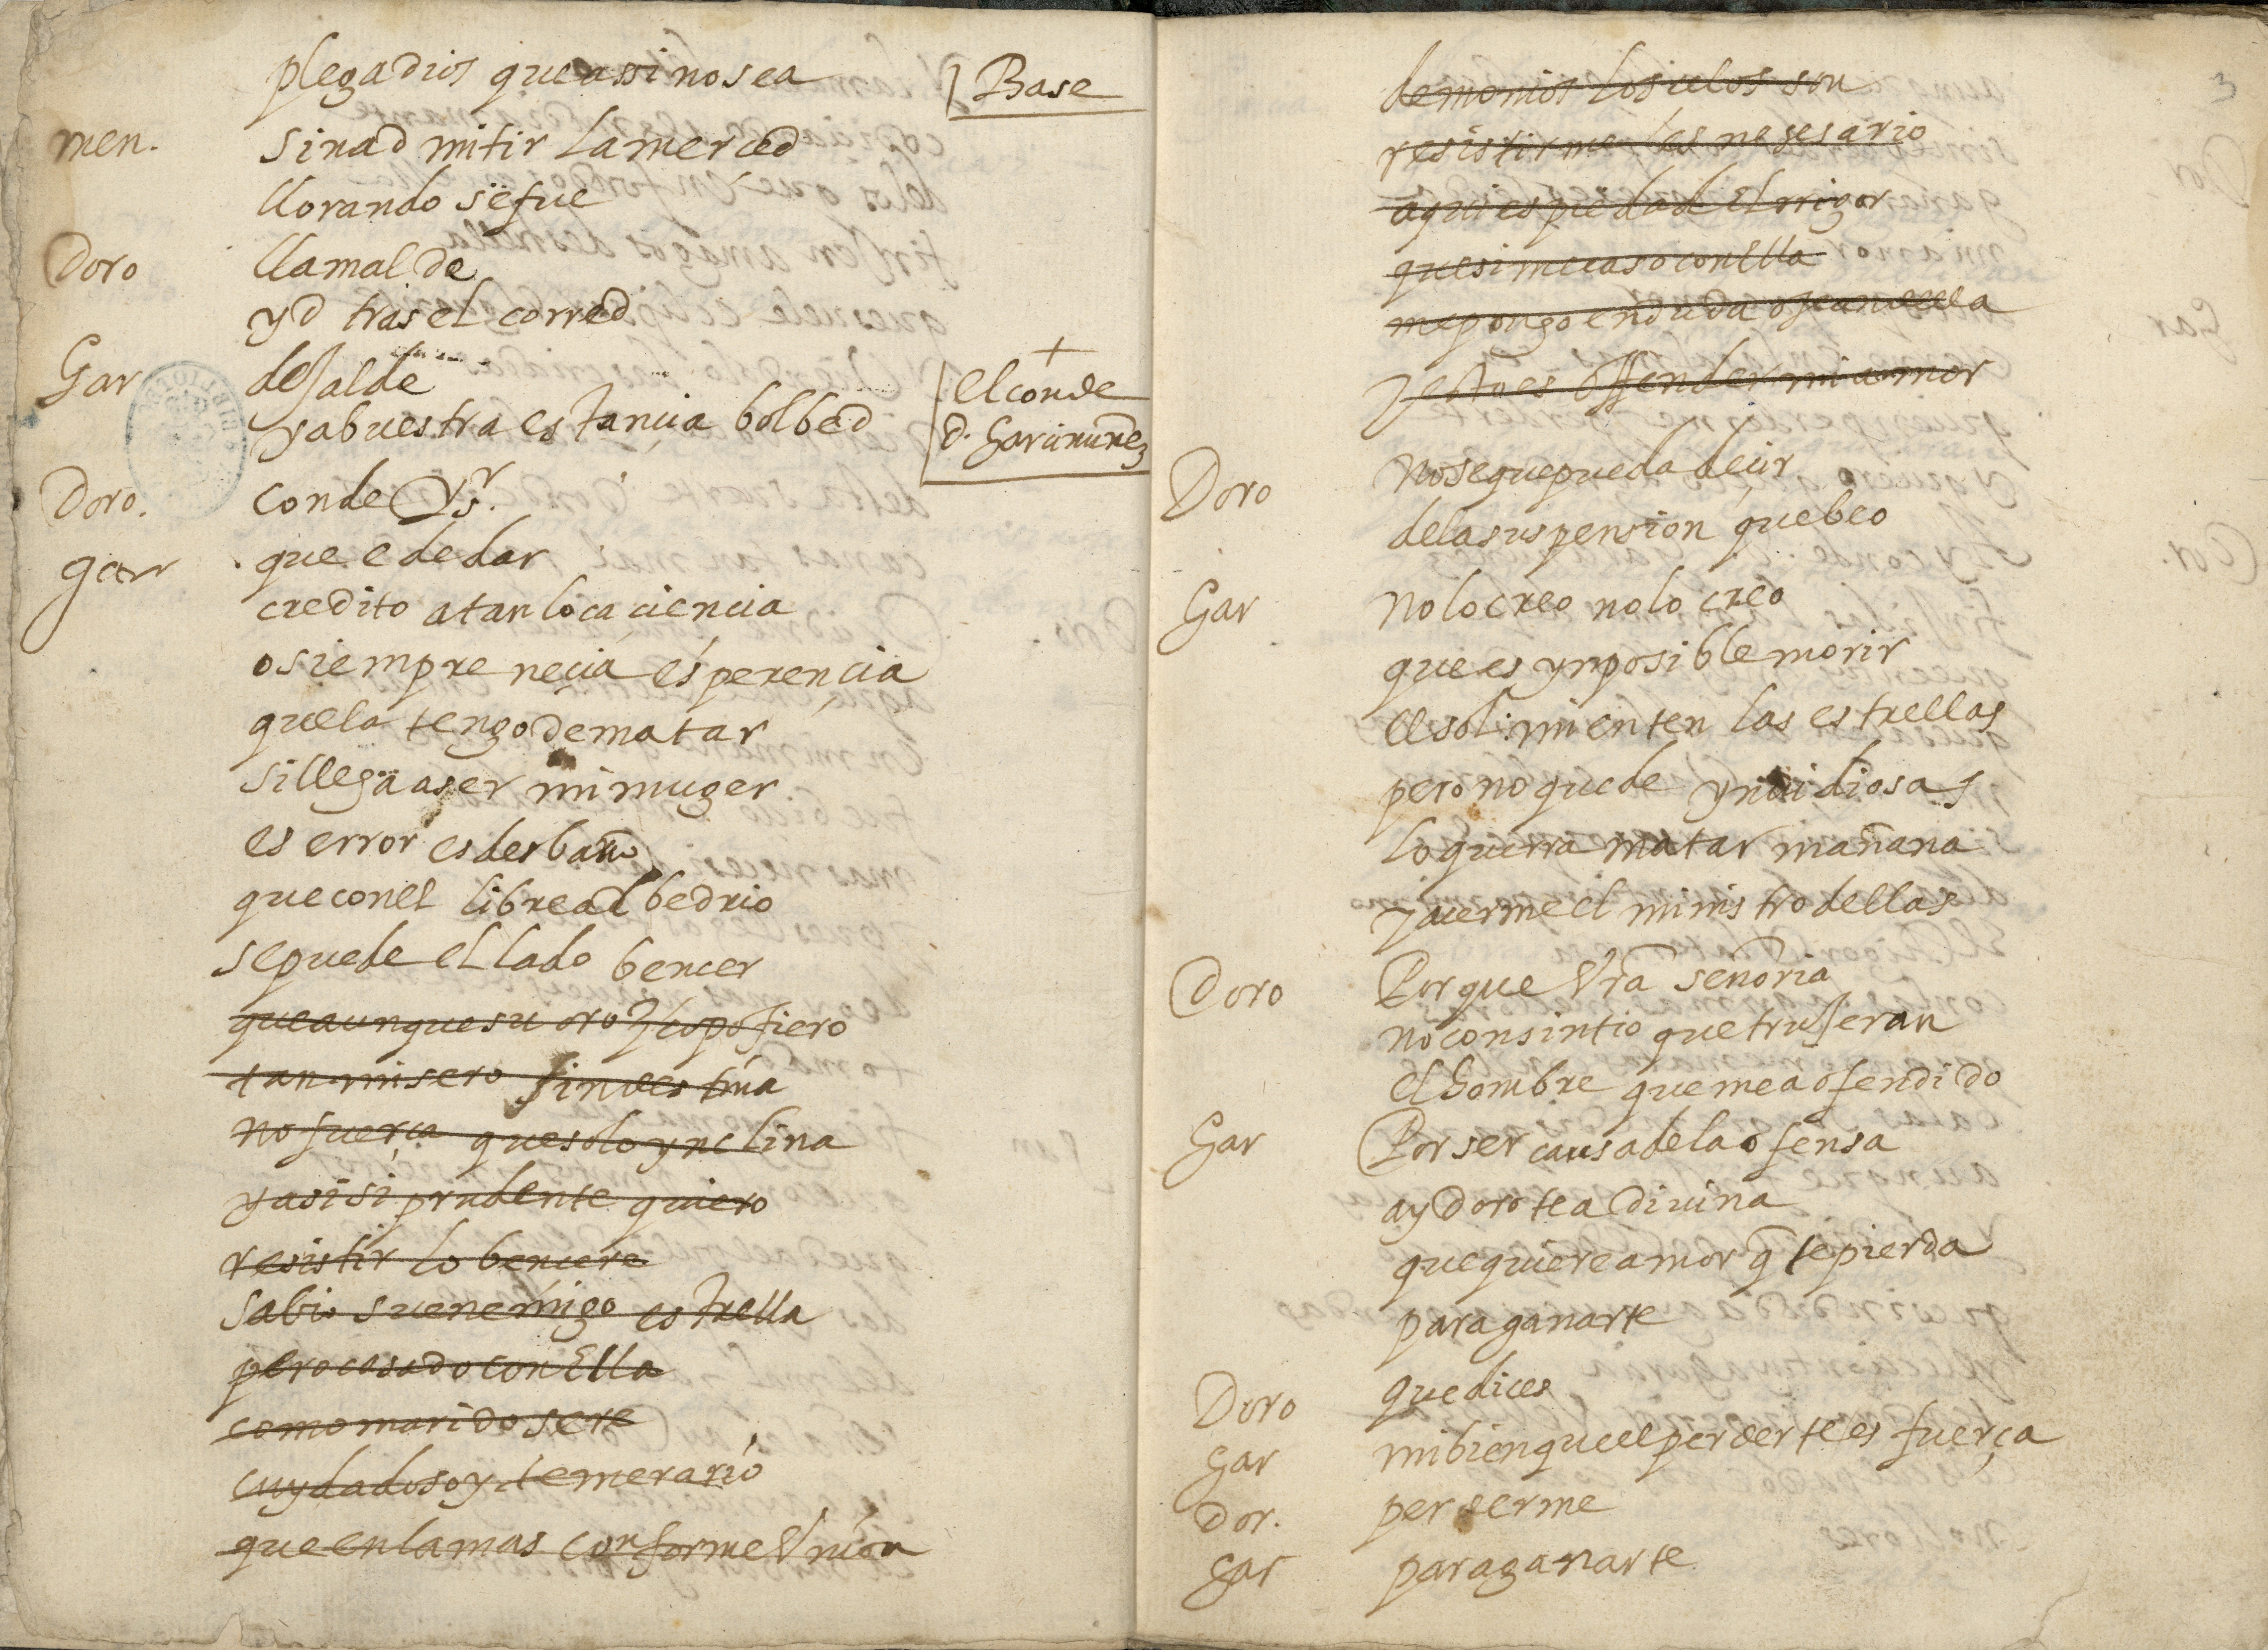 plegadios que assi no sea
Base
men. sin ad mitir la merced
llorando se fue
Doro llamalde
yd tras el corred
Gar dejalde
y a buestra estançia bolbed
+
el conde
d. Garcinuñez
Doro. conde Sr.
gar que e de dar
credito a tan loca ciencia
o siempre neçia esperençia
que la tengo de matar
si llega a ser mi muger
es error es desbario
que con el libre albedrio
se puede el lado bencer
que aunque su oroscopo fiero
tan misero fin destina
no fuerça que solo ynclina
y asi si prudente quiero
resistir lo bençere
sabio su enemigo estrella
pero casado con Ella
como marido sere
cuydadoso y temerario
que en la mas conforme Vnion
3
demonios los celos son
resistirme es nesesario
aqui es piedad El rrigor
que si me caso con Ella
me pongo en duda o
y esto es ofender mi amor
Doro no se que pueda deçir
de la suspension que beo
Gar no lo creo no lo creo
que es ynposible morir
el sol: mienten las estrellas
pero no quede ynuidiosas
lo querra matar mañana
y acerme el ministro dellas
Doro Por que Vra señoria
no consintio que trujeran
el hombre que me a ofendido
Gar Por ser causa de la ofensa
ay dorotea diuina
que quiere amor q̃ te pierda
para ganarte
Doro que dices
Gar mi bien que el perderte es fuerça
Dor. perderme
Gar para ganarte